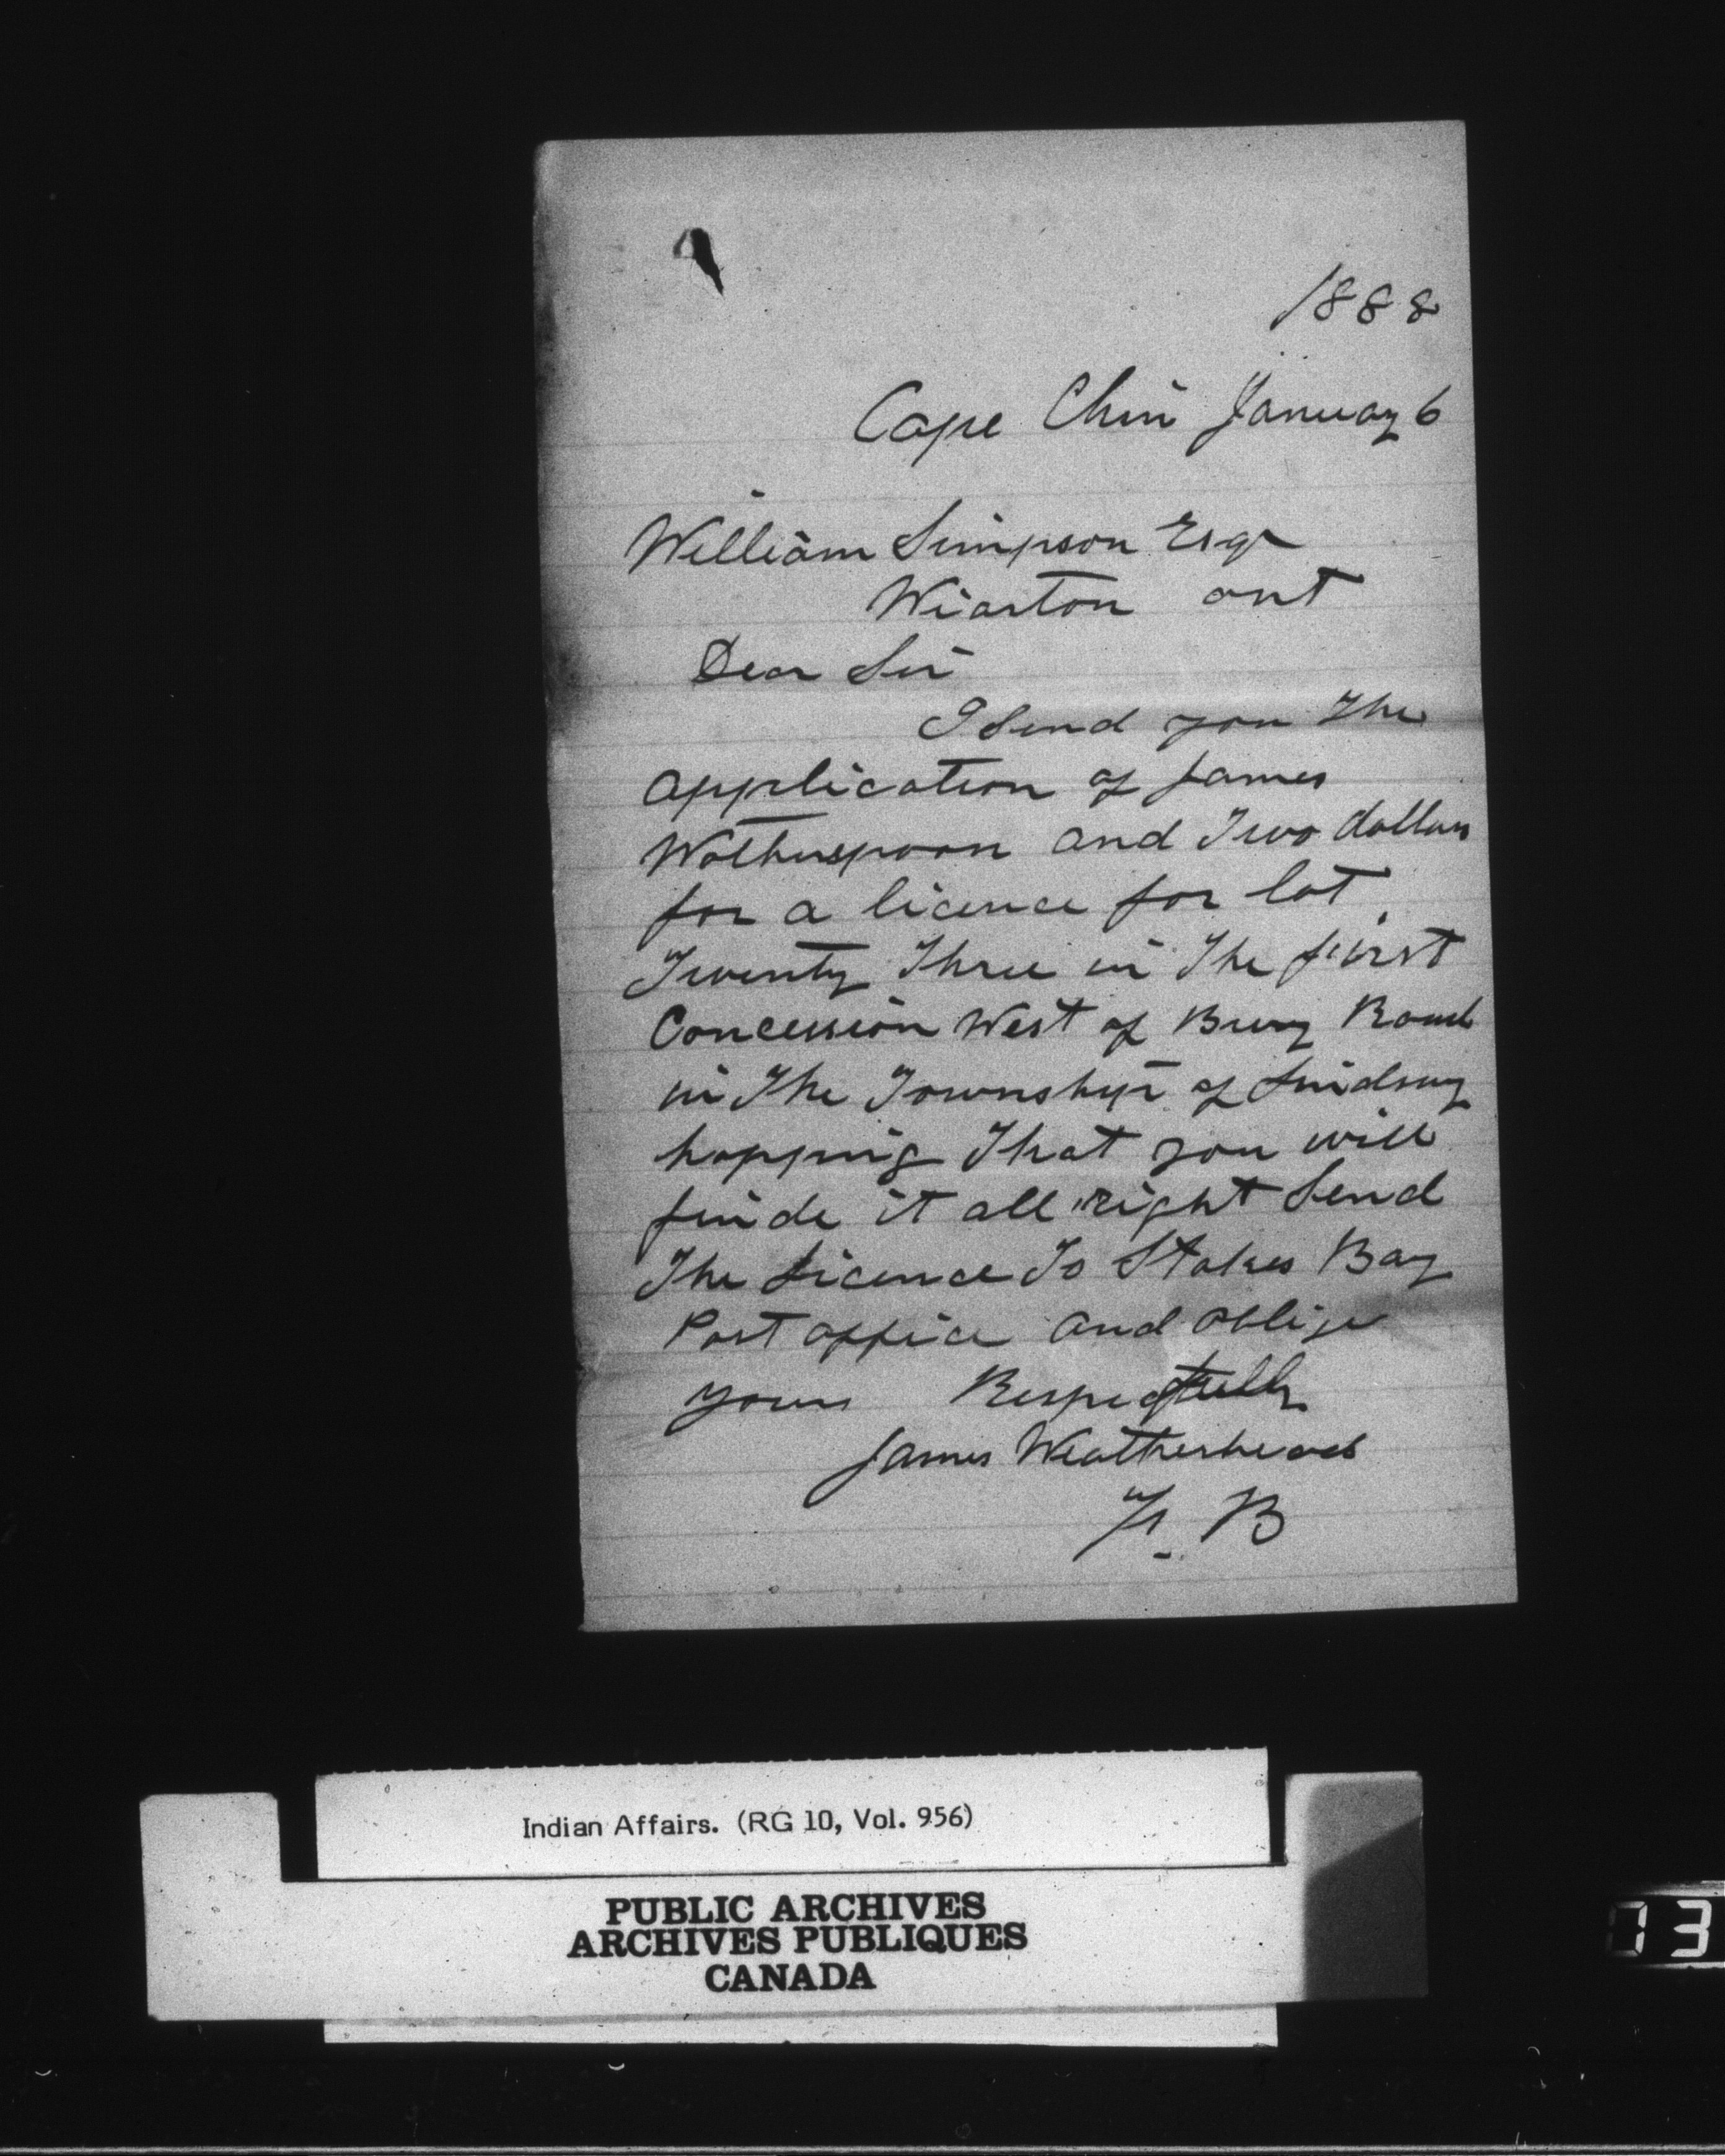 1888
Cape Chin January 6
William Simpson Esqr
Wiarton ont
Dear Sir
I Send you The
application of James
Wotherspoon and Two dollars
for a licence for lot
Twenty Three in The first
Concession West of Bury Road
in The Township of Lindsay
hopping That you will
finde it all right Send
The Licence To Stokes Bay
Post office and oblige
yours Respectfully
James Weatherhead
F. B
Indian Affairs. (RG 10, Vol. 956)
PUBLIC ARCHIVES
ARCHIVES PUBLIQUES
CANADA
73